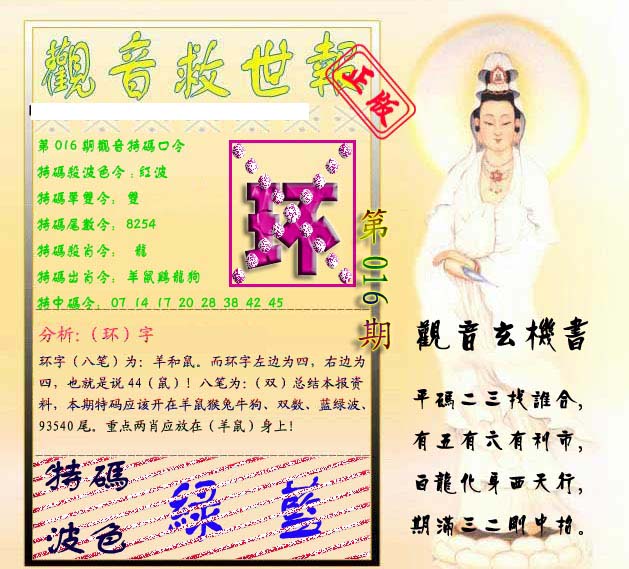 觀音救世報
正版
第016期觀音特碼口令
特碼殺波色令：紅波
特碼單雙令：雙
特碼尾數令：8254
特碼殺肖令：龍
特碼出肖令：羊鼠鷄龍狗
特中碼令：07 14 17 20 28 38 42 45
环
第016期
分析：（环）字
环字（八笔）为：羊和鼠。而环字左边为四，右边为
四，也就是说44（鼠）！八笔为：（双）总结本报资
料，本期特码应该开在羊鼠猴兔牛狗、双数、蓝绿波、
93540尾。重点两肖应放在（羊鼠）身上！
特碼
波色
綠 藍
觀音玄機書
平碼二三找誰合，
有五有六有利市，
百龍化身西天行，
期滿三二剛中拾。